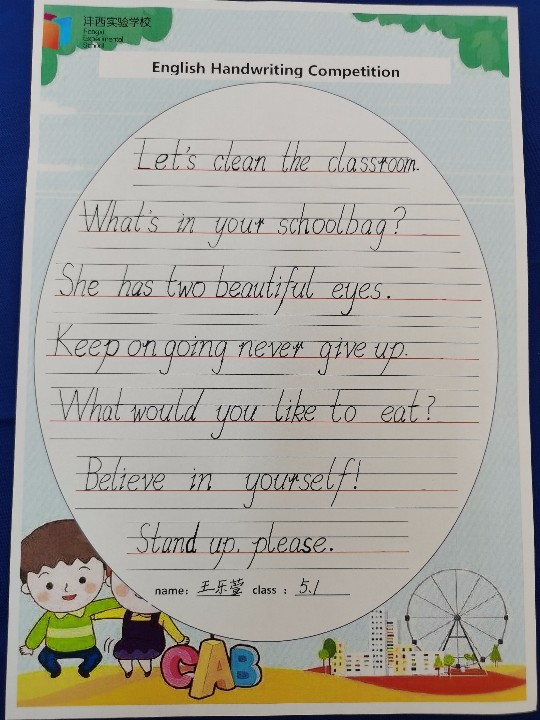 沣西实验学校
Fengxi
Experimental
School
English Handwriting Competition
Let's clean the classroom.
What's in your schoolbag?
She has two beautiful eyes.
Keep on going never give up.
What would you like to eat?
Believe in yourself!
Stand up, please.
name: 王乐萱 class : 5.1
CAB